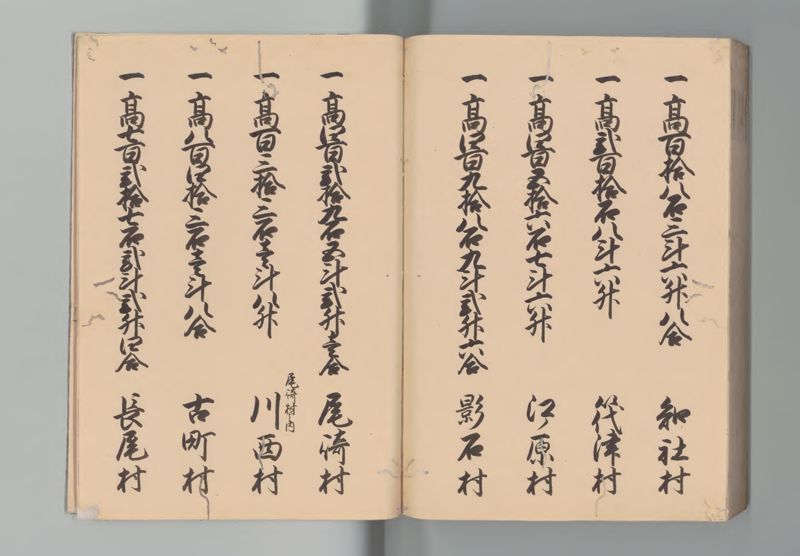 一高百拾八石三斗六升八合 和社村
一高弐百拾石八斗六升 筏津村
一高四百五拾六石七斗六升 江原村
一高四百九拾八石九斗弐升六合 影石村
一高四百弐拾九石五斗弐升壱合 尾崎村
尾崎村内
一高百三拾三石壱斗八升 川西村
一高八百四拾三石壱斗八合 古町村
一高七百弐拾七石弐斗弐升四合 長尾村